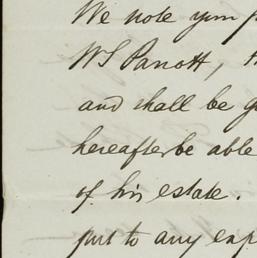 We note your
W S Parrott,
and shall be
hereafter be able
of his estate.
put to any exp